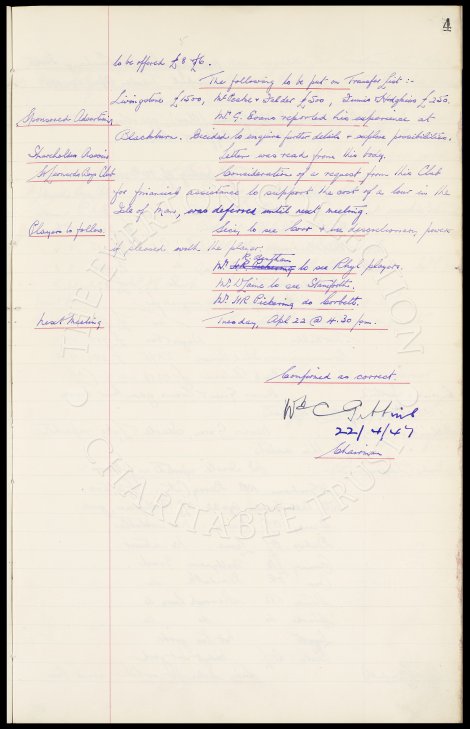 4
to be offered £8 £6.
The following to be put on Transfer List:-
Livingstone £1500, McPeake & Felder £500, Dennis Hodgkins £250.
Sponsored Advertising Mr. G. Evans reported his experience at
Blackburn. Decided to enquire further details & explore possibilities.
Shareholders Associn Letter was read from this body.
St Leonards Boys Club Consideration of a request from this Club
for financial assistance to support the cost of a tour in the
Isle of Man, was deferred until next meeting.
Players to follow. Secy. to see & use discretionary power
if pleased with the player.
Mr. H.R. Pickering to see Rhyl players.
Mr. to see Staniforth.
Mr. H.R. Pickering do Corbett.
Next Meeting Tuesday, Apl 22 @ 4.30 pm.
Confirmed as correct.
Wm C Gibbins
22/4/47
Chairman
THE EVERTON COLLECTION
CHARITABLE TRUST